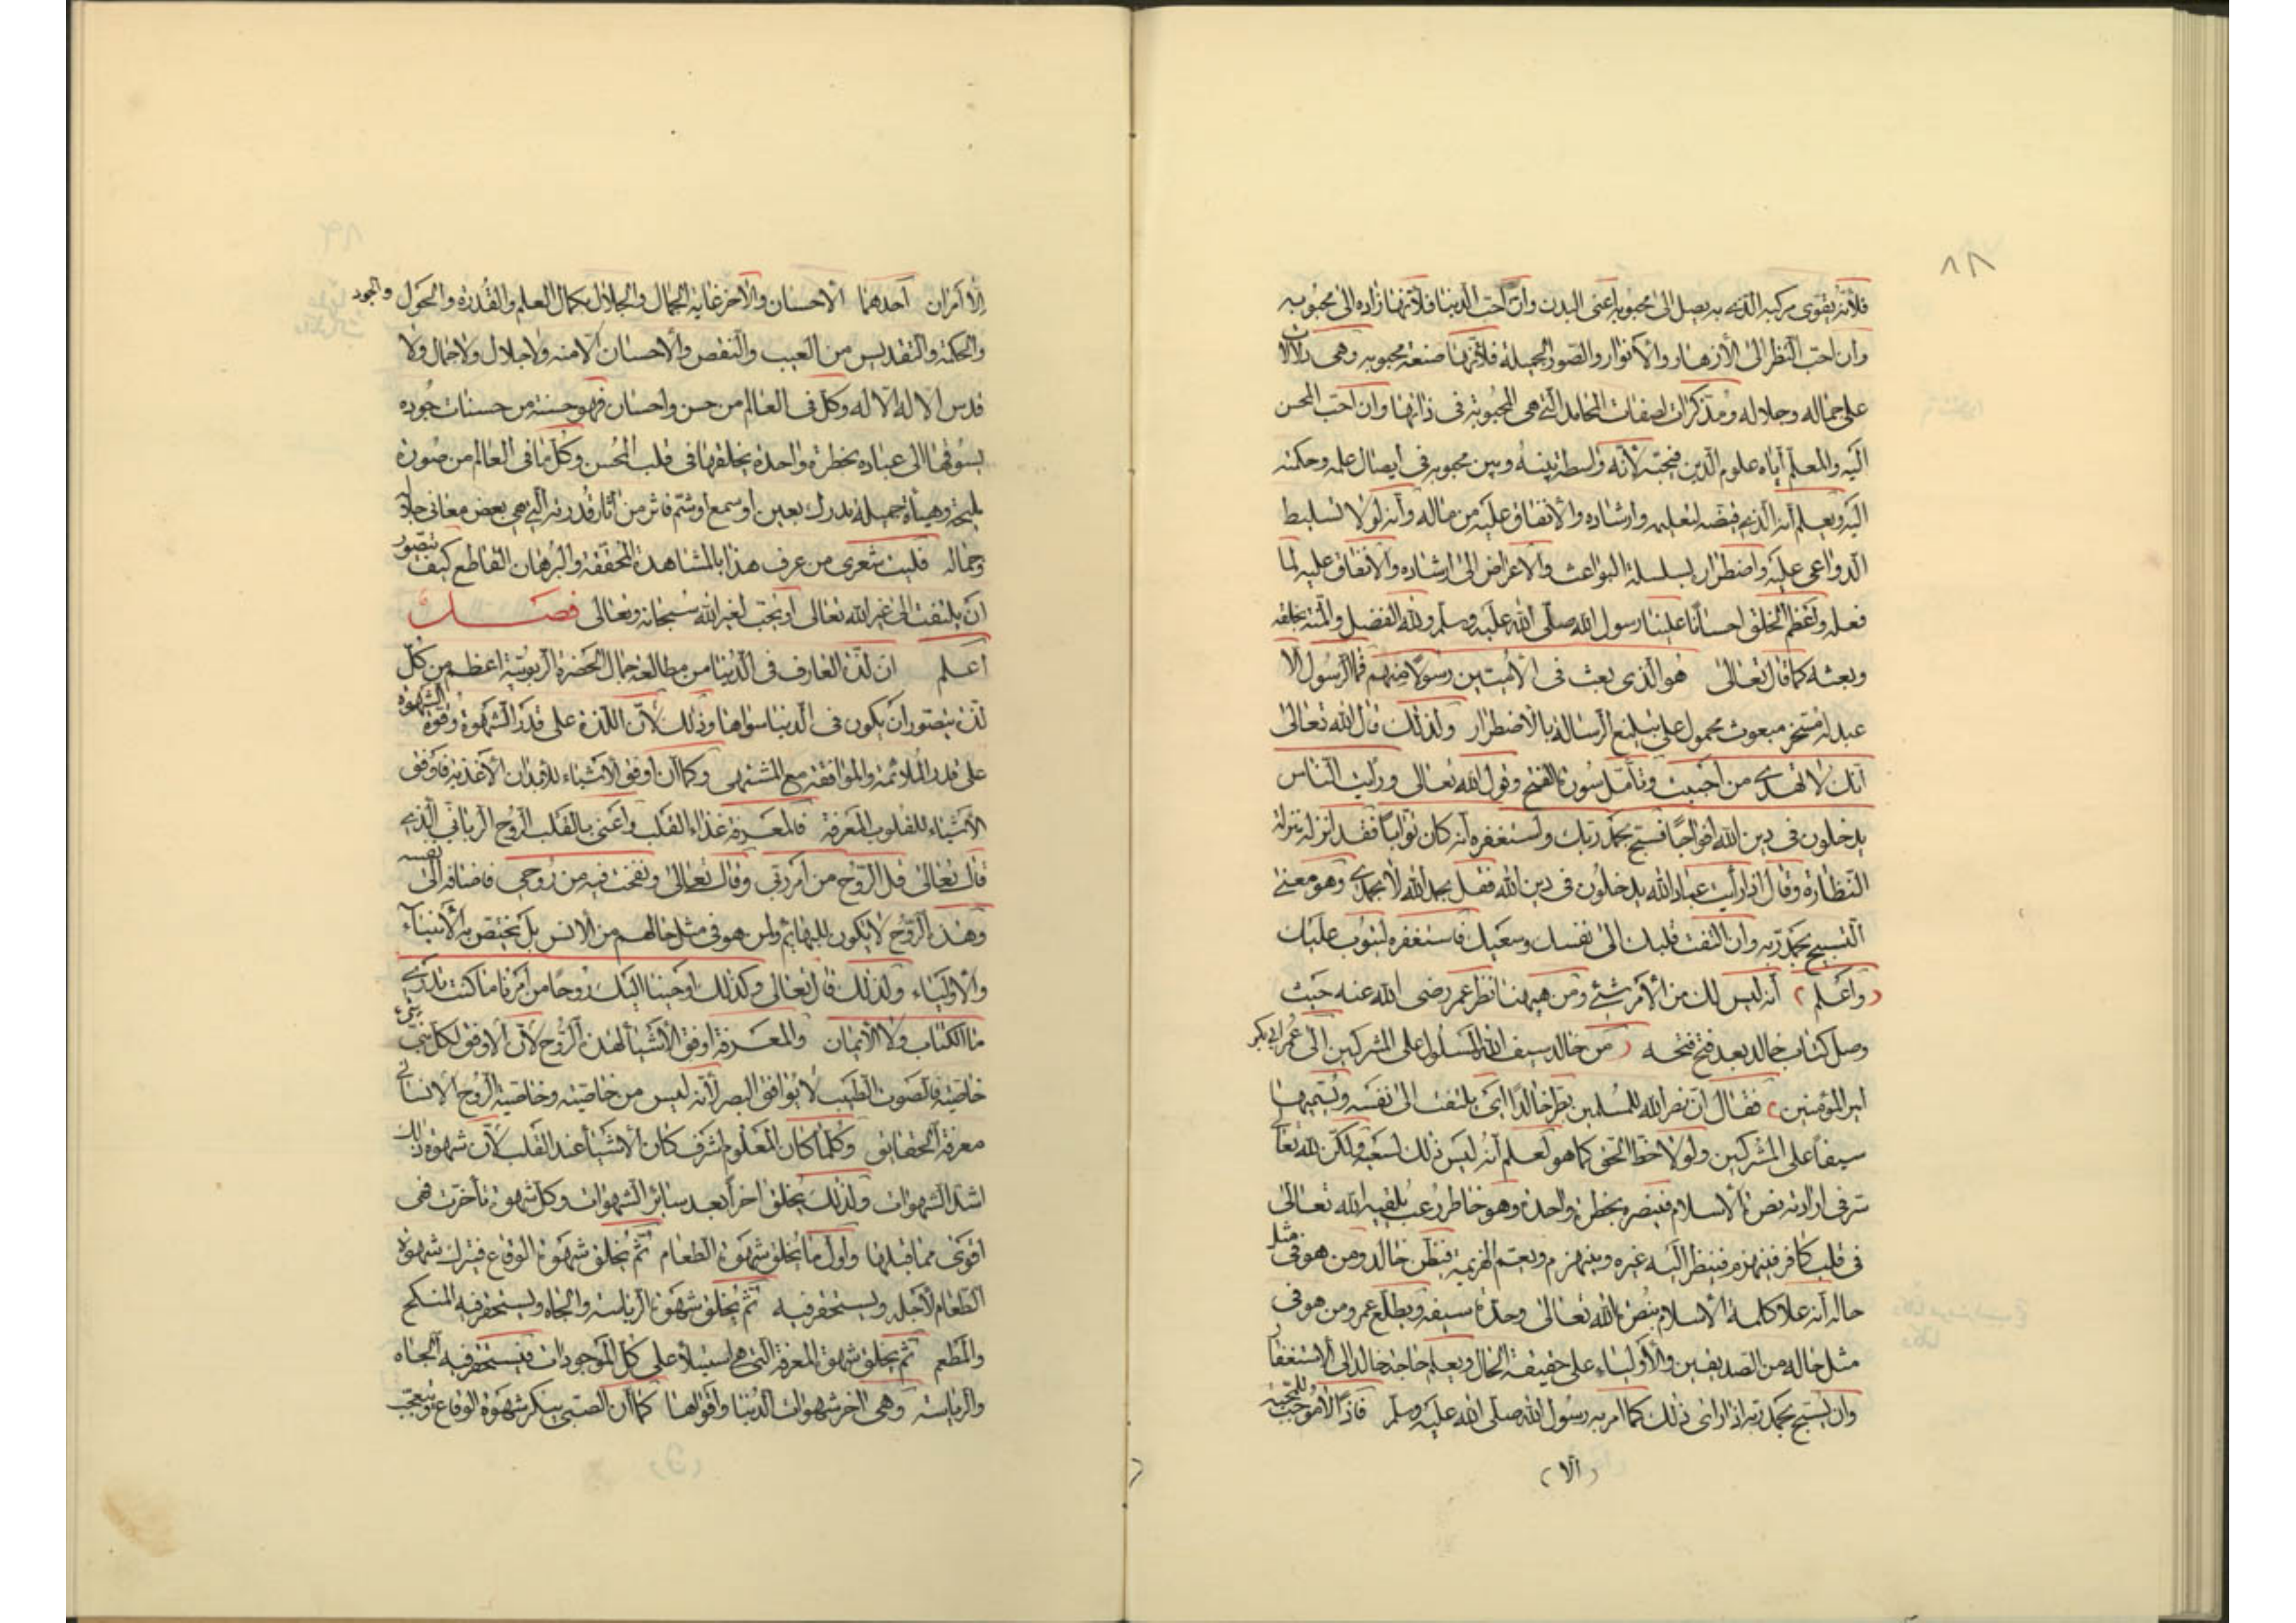 ٨٨
فلانه يقوى مركبه الذى به يصل الى محبوبه اعنى البدن وان احب الدنيا فلانها زاده الى محبوبه
وان احب النظر الى الأزهار والأنوار والصور الجميلة فلانها صنعة محبوبه وهى دلالات
على جماله وجلاله ومذكرات لصفات المحامد التى هى المحبوبة فى ذاتها وان احب المحسن
اليه والمعلم اياه علوم الدين فيحبه لانه واسطة بينه وبين محبوبه فى ايصال علمه وحكمته
اليه ويعلم انه الذى قيضه لتعليمه وارشاده والانفاق عليه من ماله وانه لولا تسليط
الدواعى عليه واضطراره بسلسلة البواعث والاعراض الى ارشاده والانفاق عليه لما
فعله واعظم الخلق احسانا علينا رسول الله صلى الله عليه وسلم ولله الفضل والمنة بخلقه
وبعثه كما قال تعالى هو الذى بعث فى الأميين رسولا منهم فما الرسول الا
عبد له مسخر مبعوث محمول على تبليغ الرسالة بالاضطرار ولذلك قال الله تعالى
انك لا تهدى من احببت وتأمل سورة الفتح وقول الله تعالى ورايت الناس
يدخلون فى دين الله افواجا فسبح بحمد ربك واستغفره انه كان توابا فقد انزله منزلة
النظارة وقال اذا رأيت عباد الله يدخلون فى دين الله فقل بحمد الله لا بحمدى وهو معنى
التسبيح بحمد ربه وان التفت قلبك الى نفسك وسعيك فاستغفره ليتوب عليك
(واعلم) انه ليس لك من الأمر شئ ومن هيهنا نظر عمر رضى الله عنه حيث
وصل كتاب خالد بعد فتح فتحه (من خالد سيف الله المسلول على المشركين الى عمر ابى بكر
امير المؤمنين) فقال ان نصر الله للمسلمين نظر خالد الى يلتفت الى نفسه ويسميها
سيفا على المشركين ولو لاحظ الحق كما هو لعلم انه ليس ذلك لسعيه ولكن لله تعالى
سر فى ارادته نصرة الاسلام فينصره بخطرة واحدة وهو خاطر رعب يلقيه الله تعالى
فى قلب كافر فينهزم فينظر اليه غيره وينهزم ويعم الهزيمة فيظن خالد ومن هو فى مثل
حاله انه علا كلمة الاسلام بنصرة الله تعالى وحدة سيفه ويطلع عمر ومن هو فى
مثل حاله من الصديقين والأولياء على حقيقة الحال ويعلم حاجة خالد الى الاستغفار
وان يسبح بحمد ربه اذا راى ذلك كما امر به رسول الله صلى الله عليه وسلم فاذا لا موجب للمحبة
(الا)
الا امران احدهما الاحسان والاخر غاية الجمال والجلال بكمال العلم والقدرة والحول والجود
والحكمة والتقديس من العيب والنقص والاحسان الا منه ولا جلال ولا جمال ولا
قدس الا له الا له وكل فى العالم من حسن واحسان فهو حسنة من حسنات جوده
يسوقها الى عباده بخطرة واحدة يخلقها فى قلب المحسن وكل ما فى العالم من صورة
مليحة وهيأة جميلة تدرك بعين او سمع او شم فاثر من آثار قدرته التى هى بعض معانى جلاله
وجماله فليت شعرى من عرف هذا بالمشاهدة المحققة والبرهان القاطع كيف يتصور
ان يلتفت الى غير الله تعالى او يحب لغير الله سبحانه وتعالى فصل
اعلم ان لذة العارف فى الدنيا من مطالعة جمال الحضرة الربوبية اعظم من كل
لذة يتصور ان يكون فى الدنيا سواها وذلك لأن اللذة على قدر الشهوة وقوة الشهوة
على قدر الملائمة والموافقة مع المشتهى وكما ان اوفق الاشياء للابدان الأغذية فاوفق
الاشياء للقلوب المعرفة فالمعرفة غذاء القلب واعنى بالقلب الروح الربانى الذى
قال تعالى قل الروح من امر ربى وقال تعالى ونفخت فيه من روحى فاضافه الى نفسه
وهذه الروح لا يكون للبهائم ولمن هو فى مثل حالهم من الانس بل يختص به الأنبياء
والأولياء ولذلك قال تعالى وكذلك اوحينا اليك روحا من امرنا ما كنت تدرى
ما الكتاب ولا الأيمان والمعرفة اوفق الأشياء لهذه الروح لأن الاوفق لكل شئ شئ
خاصيته فالصوت الطيب لا يوافق البصر لأنه ليس من خاصيته وخاصية الروح الانسانى
معرفة الحقايق وكلما كان المعلوم اشرف كان الاشياء عند القلب لأن شهوة ذلك
اشد الشهوات ولذلك يخلق اخرا بعد سائر الشهوات وكل شهوة تأخرت فهى
اقوى مما قبلها واول ما يخلق شهوة الطعام ثم يخلق شهوة الوقاع فيترك شهوة
الطعام لأجله ويستحقر فيه ثم يخلق شهوة الرياسة والجاه ويستحقر فيه المنكح
والمطعم ثم يخلق شهوة المعرفة التى هى استيلاء على كل الموجودات فيستحقر فيه الجاه
والرياسة وهى اخر شهوات الدنيا واقواها كما ان الصبى ينكر شهوة الوقاع ويتعجب